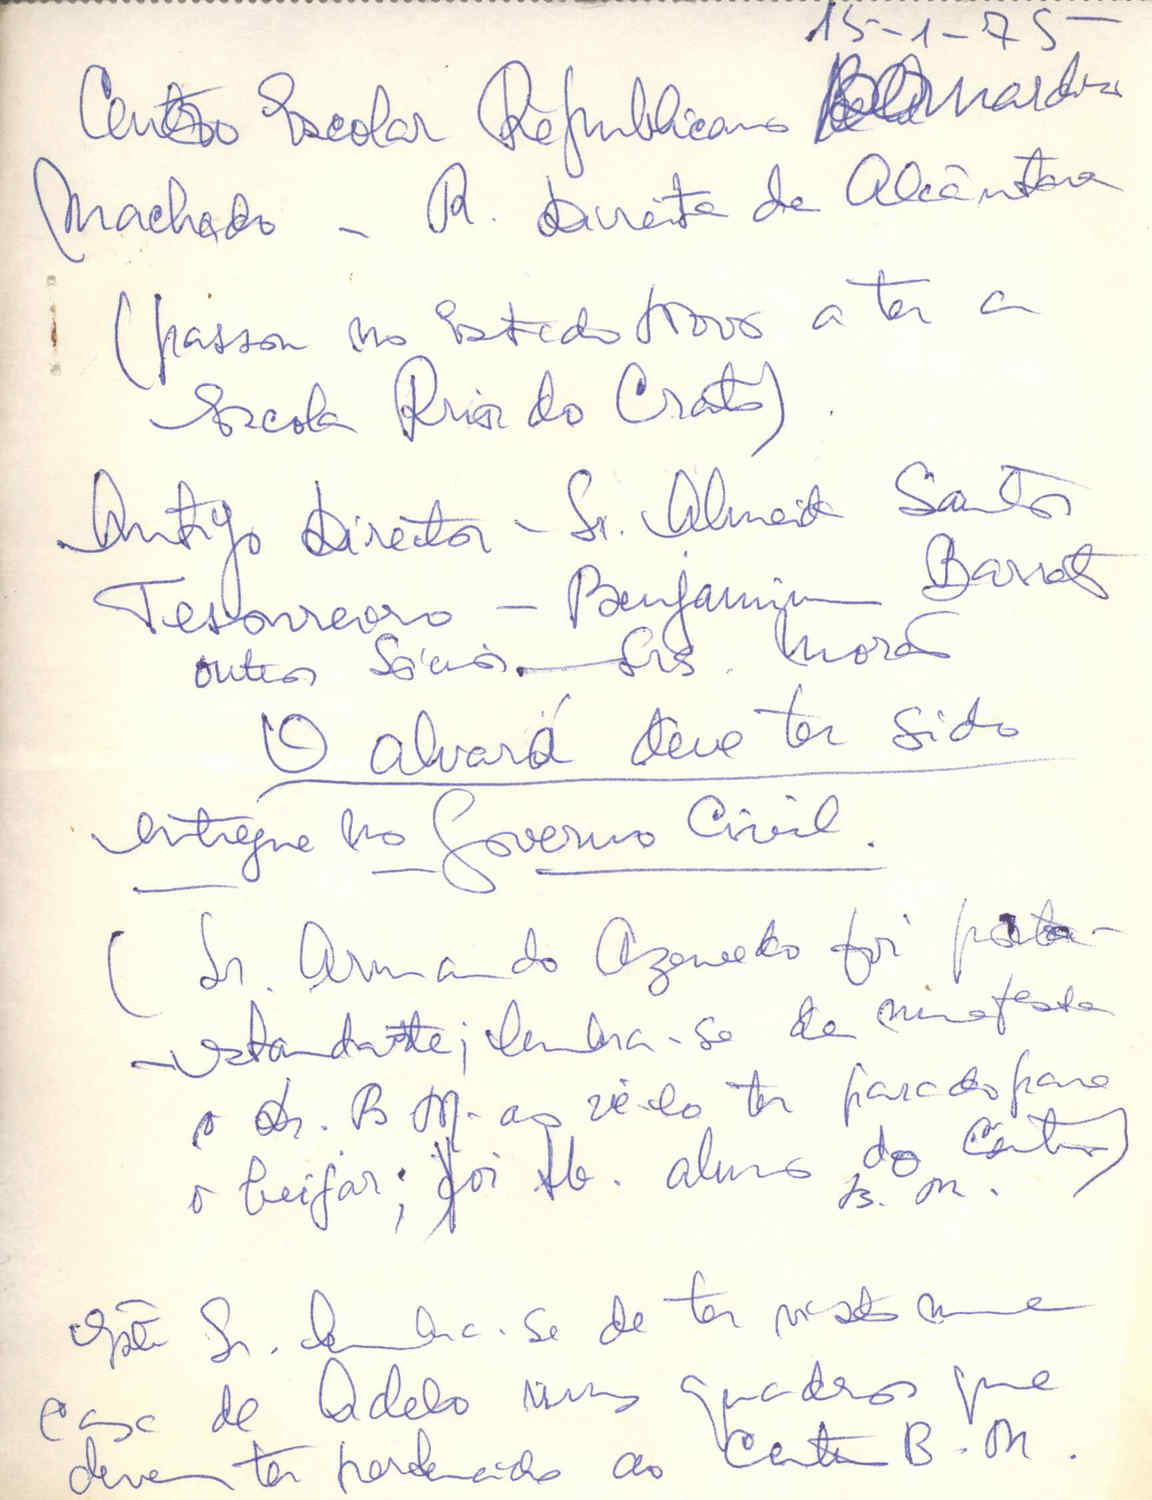 15-1-75-
Centro Escolar Republicano Bernardino
Machado - R. Direita de Alcântara
(passou no Estado Novo a ter a
Escola Prior do Crato).
Antigo Director - Sr. Almeida Santos
Tesoureiro - Benjamim Barros
outros Sócios. - Srs. Morão
O alvará deve ter sido
entregue no Governo Civil.
(Sr. Armando Azevedo foi porta-
-estandarte; lembra-se de numa festa
o Dr. B M. ao vê-lo ter parado para
o beijar; foi tb. aluno do Centro)
B. M.
Este Sr. lembra-se de ter visto numa
casa de Adelo uns quadros que
devem ter pertencido ao Centro B. M.